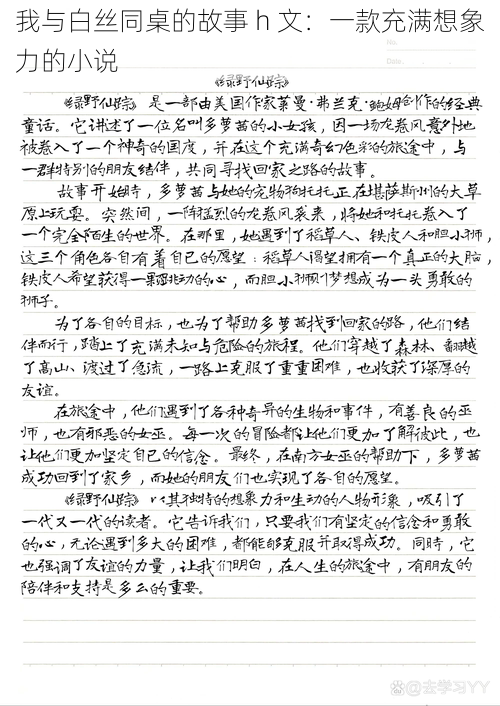 我与白丝同桌的故事 h 文：一款充满想象
力的小说
No.
Date.
《绿野仙踪》
《绿野仙踪》是一部由美国作家莱曼·弗兰克·鲍姆创作的经典
童话。它讲述了一位名叫多萝茜的小女孩，因一场龙卷风意外地
被卷入了一个神奇的国度，并在这个充满奇幻色彩的旅途中，与
一群特别的朋友结伴，共同寻找回家之路的故事。
故事开始时，多萝茜与她的宠物狗托托正在堪萨斯州的大草
原上玩耍。突然间，一阵猛烈的龙卷风袭来，将她和托托卷入了
一个完全陌生的世界。在那里，她遇到了稻草人、铁皮人和胆小狮，
这三个角色各自有着自己的愿望：稻草人渴望拥有一个真正的大脑，
铁皮人希望获得一颗跳动的心，而胆小狮则梦想成为一头勇敢的
狮子。
为了各自的目标，也为了帮助多萝茜找到回家的路，他们结
伴而行，踏上了充满未知与危险的旅程。他们穿越了森林、翻越
了高山、渡过了急流，一路上克服了重重困难，也收获了深厚的
友谊。
在旅途中，他们遇到了各种奇异的生物和事件，有善良的巫
师，也有邪恶的女巫。每一次的冒险都让他们更加了解彼此，也
让他们更加坚定自己的信念。最终，在南方女巫的帮助下，多萝茜
成功回到了家乡，而她的朋友们也实现了各自的愿望。
《绿野仙踪》以其独特的想象力和生动的人物形象，吸引了
一代又一代的读者。它告诉我们，只要我们有坚定的信念和勇敢
的心，无论遇到多大的困难，都能够克服并取得成功。同时，它
也强调了友谊的力量，让我们明白，在人生的旅途中，有朋友的
陪伴和支持是多么的重要。
@去学习YY